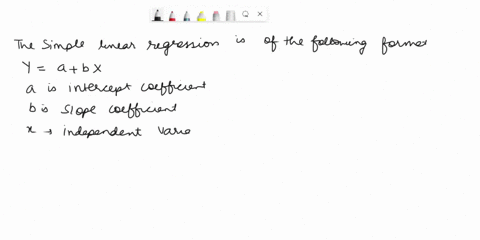 The simple linear regression is of the following former
Y = a + b X
a is intercept coefficient
b is slope coefficient
x → independent varia